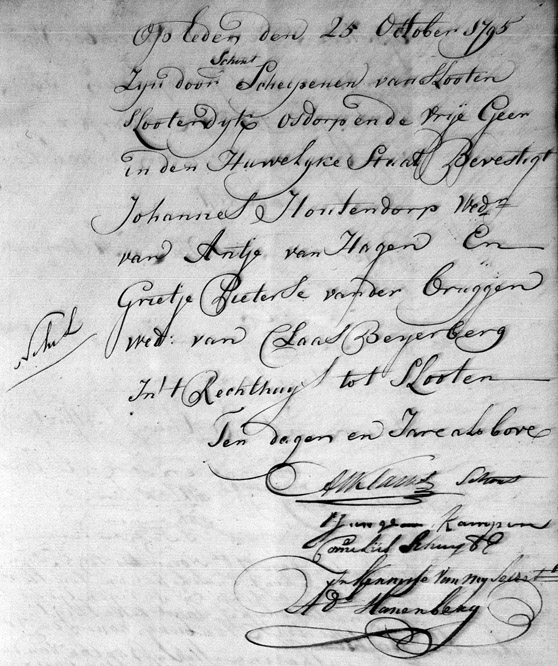 Op leden den 25 October 1795
Schout
Zyn door Schepenen van Slooten
Slooterdyk osdorp en de vrije Geer
in den Huwelyke Staat Bevestigt
Johannes Houtendorp Wedr
van Antje van Hagen En
Grietje Pieterse van der Bruggen
wed: van Claas Beyerberg
In't Rechthuys tot Slooten
Ten dagen en Jare als bove
Schout
Junge Kampen
Cornelis Schuyt
In kennisse van my Secrets
Ad Hanenberg